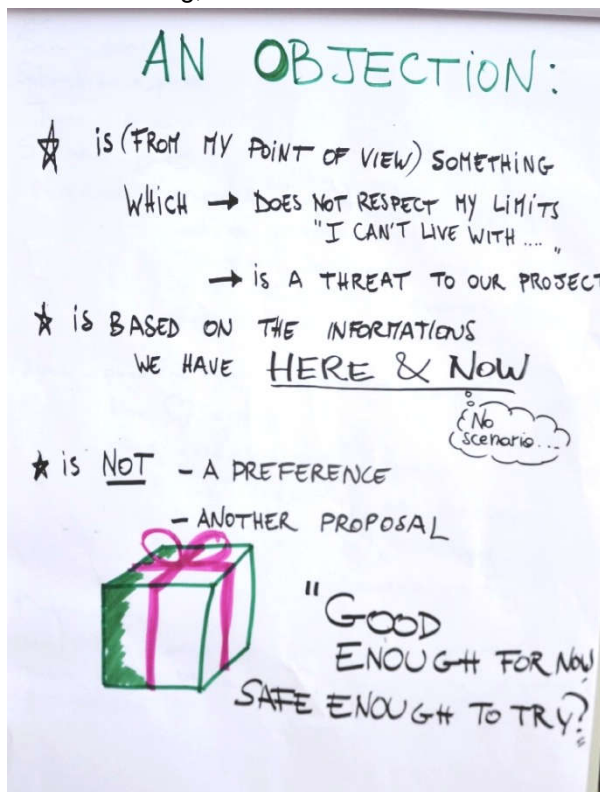 AN OBJECTION:
is (FROM MY POINT OF VIEW) SOMETHING
WHICH → DOES NOT RESPECT MY LIMITS
"I CAN'T LIVE WITH .... "
→ is A THREAT TO OUR PROJECT
is BASED ON THE INFORMATIONS
WE HAVE HERE & NOW
No
scenario...
is NOT - A PREFERENCE
- ANOTHER PROPOSAL
"GOOD
ENOUGH FOR NOW
SAFE ENOUGH TO TRY?"